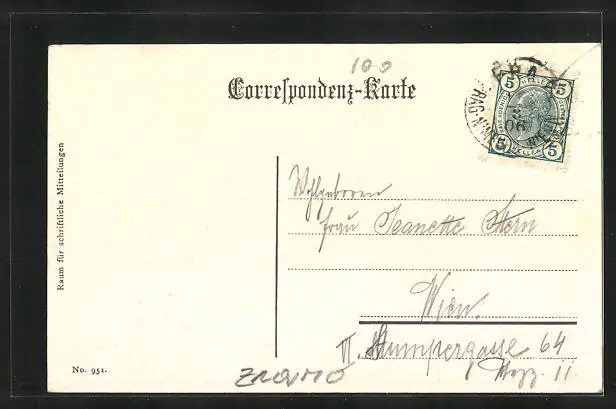 100
Correspondenz-Karte
5 HELLER 5
5 HELLER 5
Raum für schriftliche Mitteilungen
Wohlgeboren
Frau Jeanette Stern
Wien.
VI. Stumpergasse 64
Mezz. 11.
No. 951.